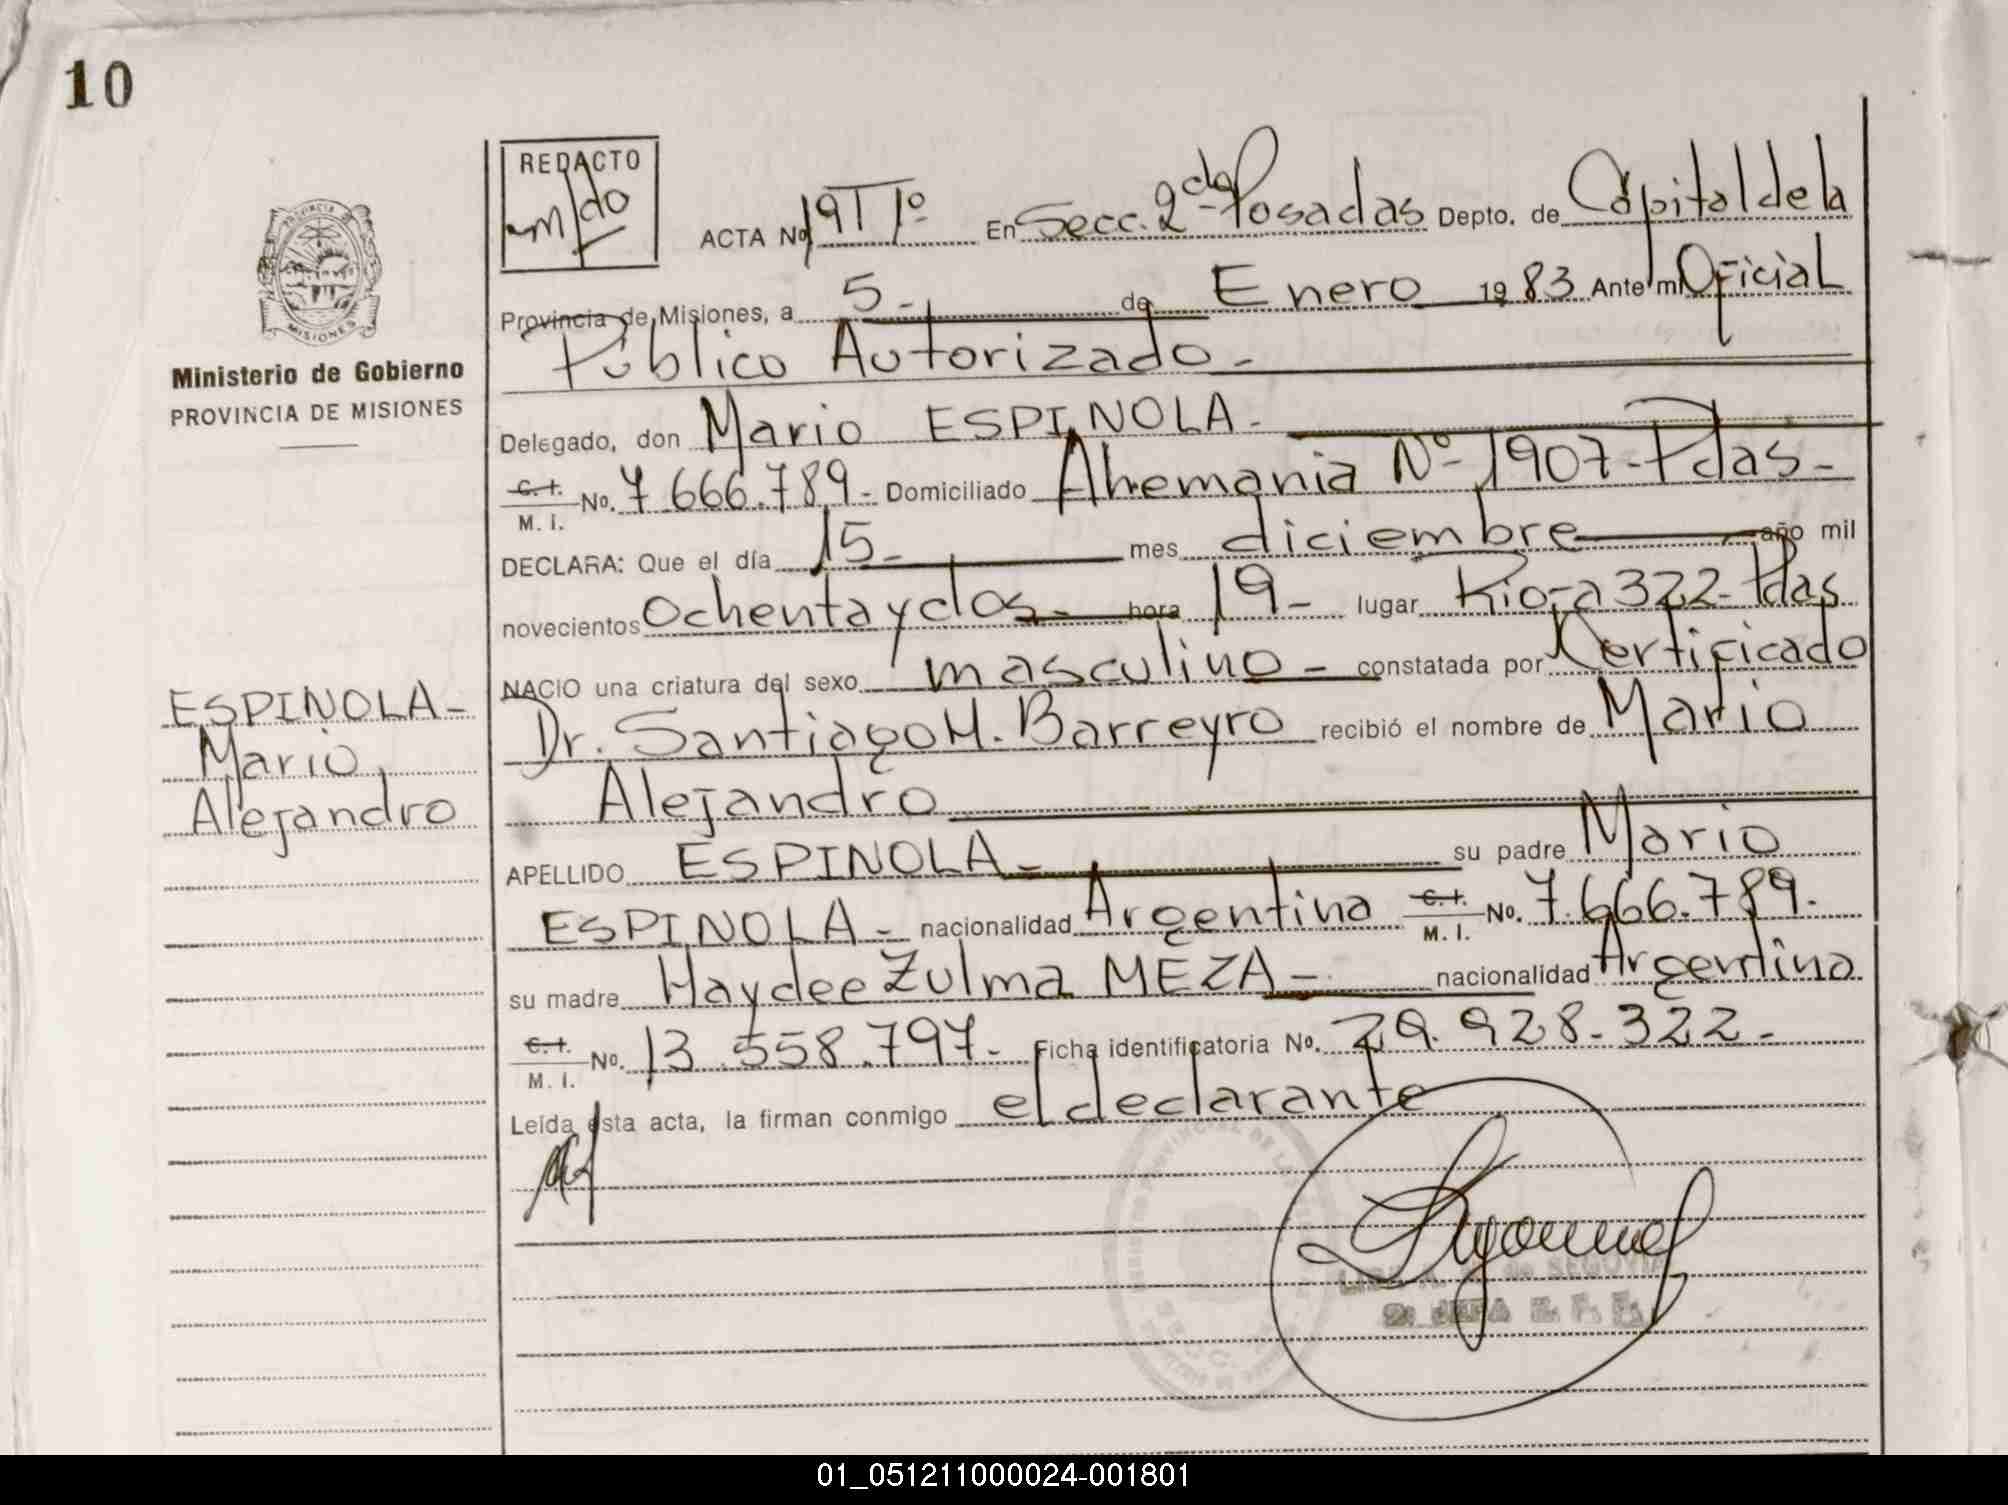 10
REDACTO
ACTA No 19 T 1º En Secc. 2da Posadas Depto. de Capital de la
Provincia de Misiones, a 5 - de Enero 1983 Ante mi Oficial
Público Autorizado -
MISIONES
Ministerio de Gobierno
PROVINCIA DE MISIONES
Delegado, don Mario ESPINOLA -
C.I. M. I. No. 7.666.789 - Domiciliado Alremania Nº 1907 - Pdas -
DECLARA: Que el día 15 - mes diciembre año mil
novecientos Ochenta y dos - hora 19 - lugar Rioja 322 - Pdas
NACIO una criatura del sexo masculino - constatada por Certificado
Dr. Santiago H. Barreyro recibió el nombre de Mario
Alejandro
ESPINOLA -
Mario
Alejandro
APELLIDO ESPINOLA - su padre Mario
ESPINOLA - nacionalidad Argentina C.I. M. I. No. 7.666.789.
su madre Haydee Zulma MEZA - nacionalidad Argentina
C.I. M. I. No. 13.558.797 - Ficha identificatoria No. 29.928.322 -
Leída esta acta, la firman conmigo el declarante
de SEGOVIA
JEFA
01_051211000024-001801